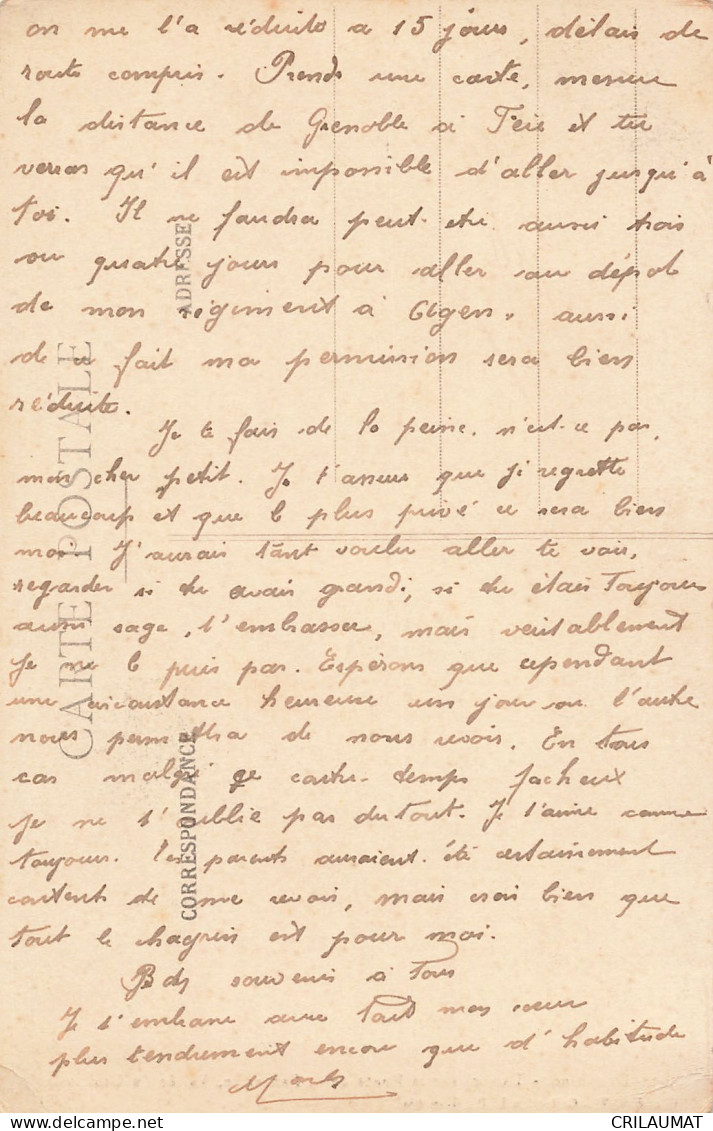 on me l'a réduite a 15 jours, délais de
route compris. Prends une carte, mesure
la distance de Grenoble à et tu
verras qu'il est impossible d'aller jusqu'à
toi. Il me faudra peut-etre aussi trois
ou quatre jours pour aller au dépot
de mon régiment à Agen, aussi
de fait ma permission sera bien
réduite.
Je te fais de la peine, n'est-ce pas,
mon cher petit. Je t'assure que je regrette
beaucoup et que le plus privé ce sera bien
moi. J'aurais tant voulu aller te voir,
regarder si tu avais grandi, si tu étais toujours
aussi sage, t'embrasser, mais véritablement
je ne le puis pas. Espérons que cependant
une circonstance heureuse un jour ou l'autre
nous permettra de nous revoir. En tous
cas malgré ce contre-temps facheux
je ne t'oublie pas du tout. Je t'aime comme
toujours. Tes parents auraient été certainement
contents de me revoir, mais crois bien que
tout le chagrin est pour moi.
Bds souvenirs à tous
Je t'embrasse avec tout mon coeur
plus tendrement encore que d'habitude
CARTE POSTALE
ADRESSE
CORRESPONDANCE
CRILAUMAT